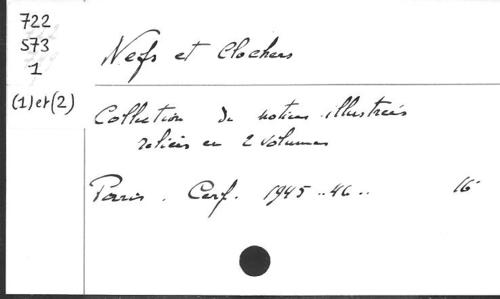 722
573
1
(1) et (2)
Nefs et Clochers
Collection de notices illustrées
reliées en 2 volumes
Paris. Cerf. 1945..46.. 16°